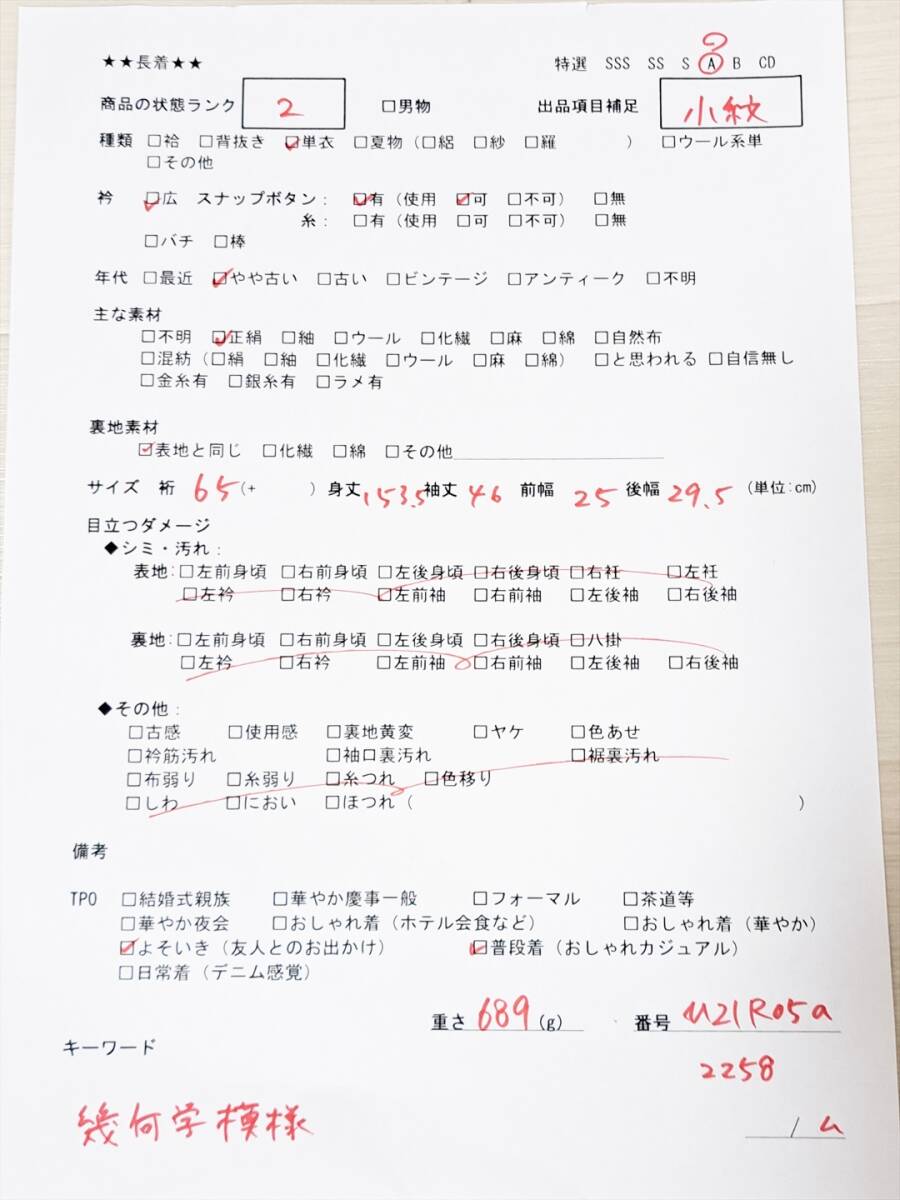 ★★長着★★ 特選 SSS SS S A B CD
商品の状態ランク 2 □男物 出品項目補足 小紋
種類 □袷 □背抜き ☑単衣 □夏物(□絽 □紗 □羅 ) □ウール系単
□その他
衿 ☑広 スナップボタン: ☑有(使用 ☑可 □不可) □無
糸: □有(使用 □可 □不可) □無
□バチ □棒
年代 □最近 ☑やや古い □古い □ビンテージ □アンティーク □不明
主な素材
□不明 ☑正絹 □紬 □ウール □化繊 □麻 □綿 □自然布
□混紡(□絹 □紬 □化繊 □ウール □麻 □綿) □と思われる □自信無し
□金糸有 □銀糸有 □ラメ有
裏地素材
☑表地と同じ □化繊 □綿 □その他
サイズ 裄 65 (+ ) 身丈 153.5 袖丈 46 前幅 25 後幅 29.5 (単位:cm)
目立つダメージ
◆シミ・汚れ:
表地:□左前身頃 □右前身頃 □左後身頃 □右後身頃 □右衽 □左衽
□左衿 □右衿 □左前袖 □右前袖 □左後袖 □右後袖
裏地:□左前身頃 □右前身頃 □左後身頃 □右後身頃 □八掛
□左衿 □右衿 □左前袖 □右前袖 □左後袖 □右後袖
◆その他:
□古感 □使用感 □裏地黄変 □ヤケ □色あせ
□衿筋汚れ □袖口裏汚れ □裾裏汚れ
□布弱り □糸弱り □糸つれ □色移り
□しわ □におい □ほつれ( )
備考
TPO □結婚式親族 □華やか慶事一般 □フォーマル □茶道等
□華やか夜会 □おしゃれ着(ホテル会食など) □おしゃれ着(華やか)
☑よそいき(友人とのお出かけ) ☑普段着(おしゃれカジュアル)
□日常着(デニム感覚)
重さ 689 (g) 番号 U21R05a
キーワード
2258
幾何学模様
/ム